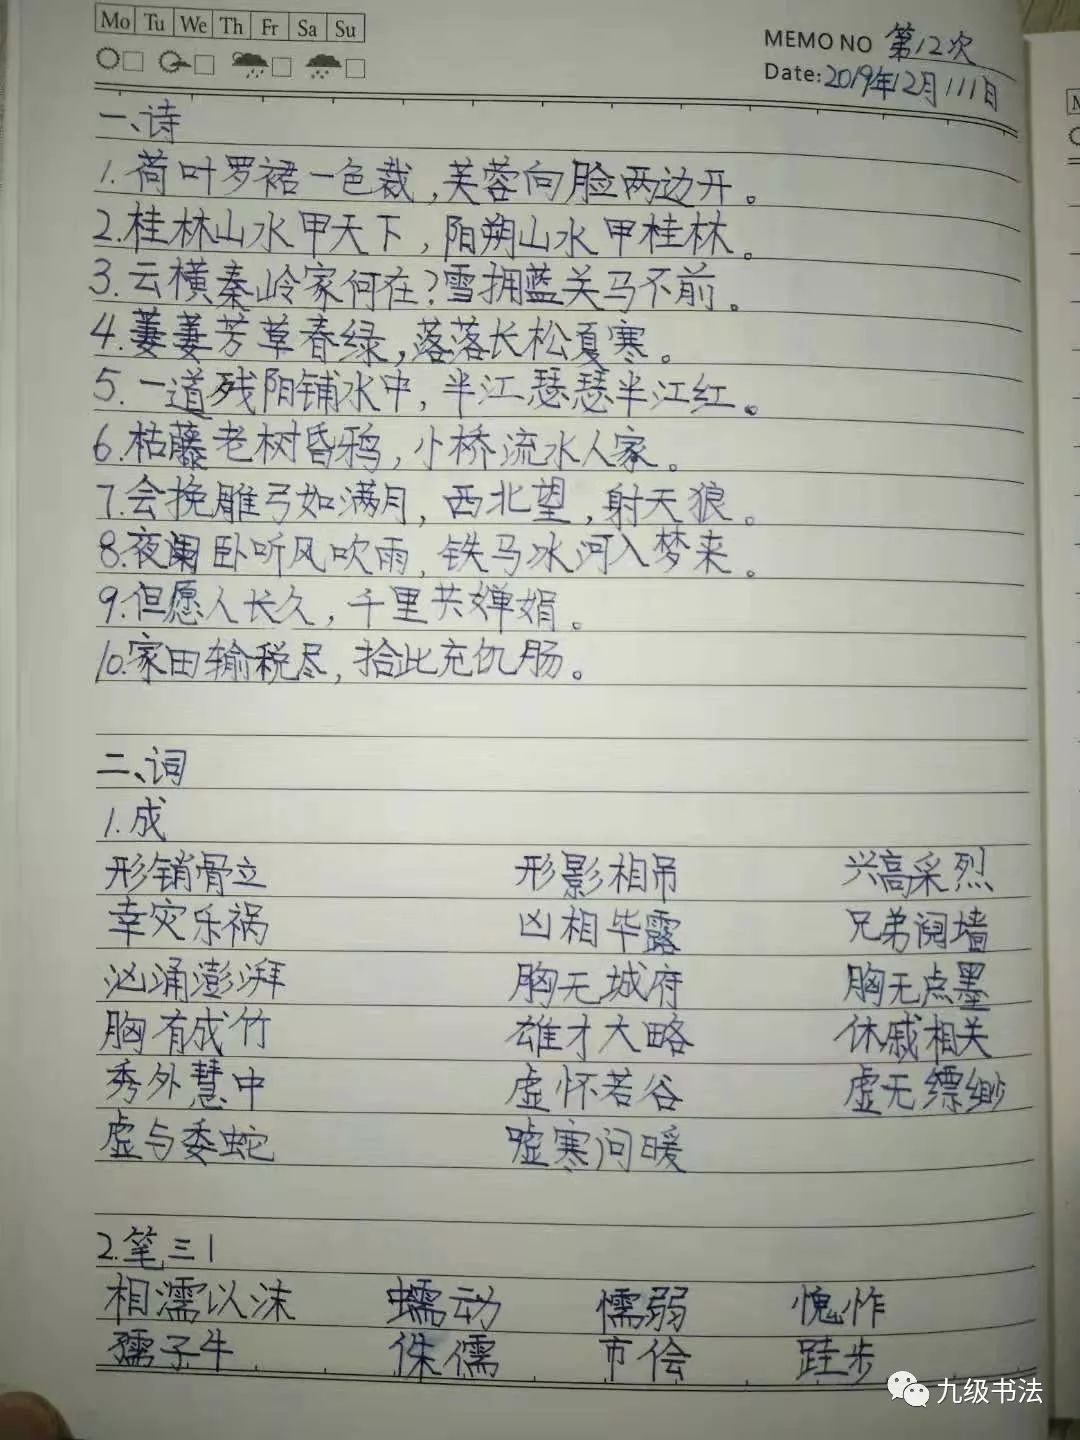 Mo Tu We Th Fr Sa Su
MEMO NO 第12次
Date:2019年12月11日
一、诗
1.荷叶罗裙一色裁,芙蓉向脸两边开。
2.桂林山水甲天下,阳朔山水甲桂林。
3.云横秦岭家何在?雪拥蓝关马不前。
4.萋萋芳草春绿,落落长松夏寒。
5.一道残阳铺水中,半江瑟瑟半江红。
6.枯藤老树昏鸦,小桥流水人家。
7.会挽雕弓如满月,西北望,射天狼。
8.夜阑卧听风吹雨,铁马冰河入梦来。
9.但愿人长久,千里共婵娟。
10.家田输税尽,拾此充饥肠。
二、词
1.成
形销骨立 形影相吊 兴高采烈
幸灾乐祸 凶相毕露 兄弟阋墙
汹涌澎湃 胸无城府 胸无点墨
胸有成竹 雄才大略 休戚相关
秀外慧中 虚怀若谷 虚无缥缈
虚与委蛇 嘘寒问暖
2.笔三1
相濡以沫 蠕动 懦弱 愧怍
孺子牛 侏儒 市侩 跬步
九级书法